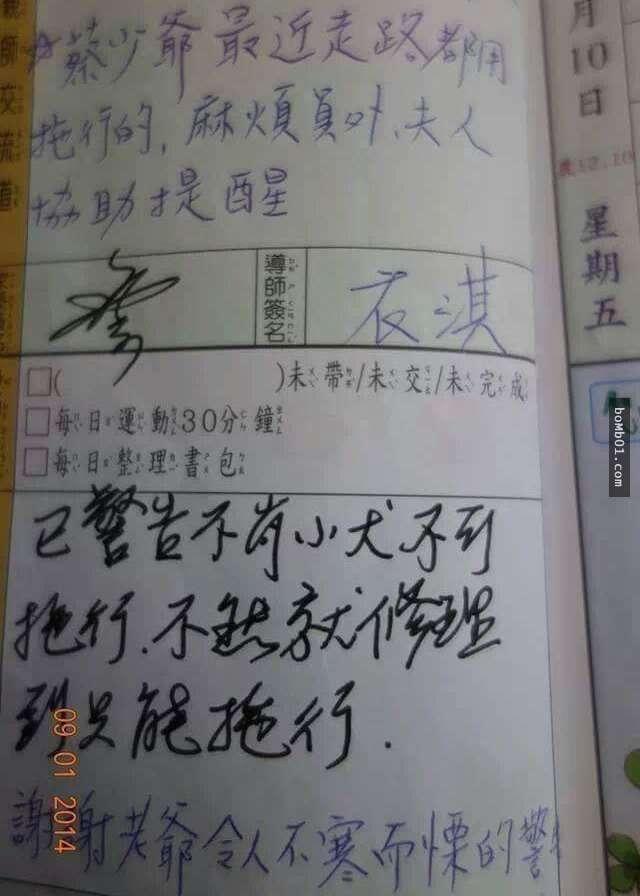 親師交流道
蔡少爺最近走路都用
拖行的,麻煩員外、夫人
協助提醒
導師簽名
衣淇
□( )未帶/未交/未完成
□每日運動30分鐘
□每日整理書包
已警告不肖小犬不到
拖行.不然就修理
到只能拖行.
謝謝老爺令人不寒而慄的警
月10日
12.10
星期五
09 01 2014
bomb01.com